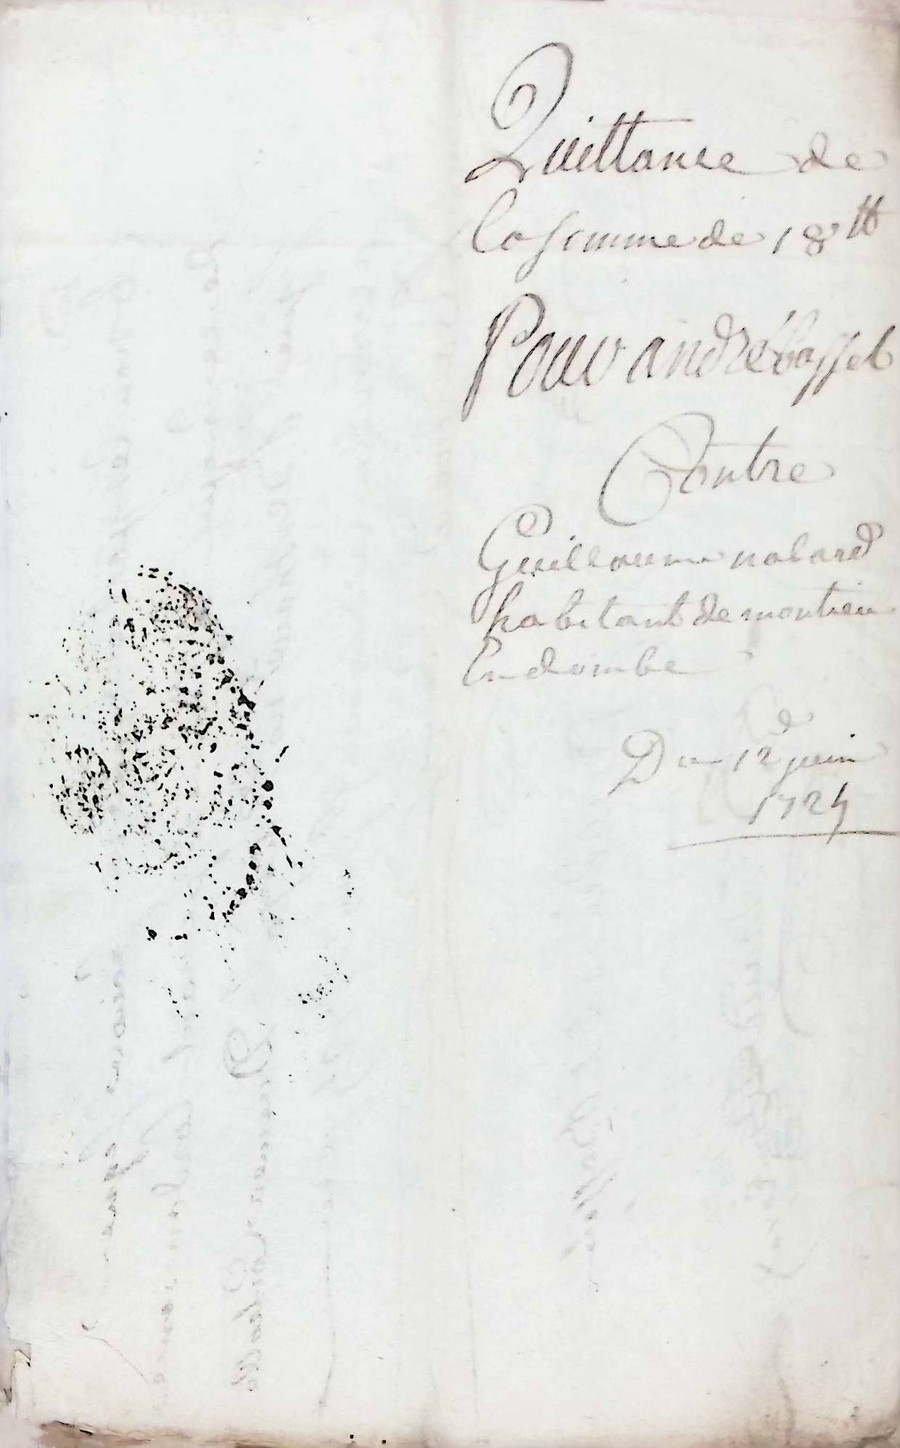 Quittance de
la somme de 18 ₶
Pour andré bassel
Contre
Guillaume nalard
habitant de montieu
En dombe
Du 12e juin
1724